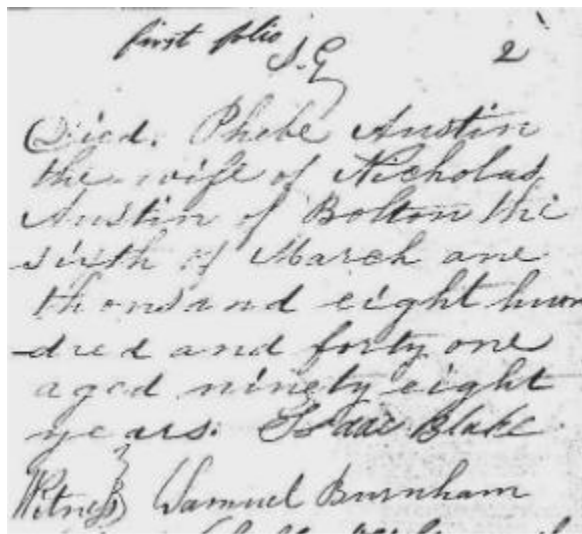 first folio S.G 2
Died. Phebe Austin
the wife of Nicholas
Austin of Bolton the
sixth of March one
thousand eight hun
-dred and forty one
aged ninety eight
years. Isaac Blake
Witness Samuel Burnham